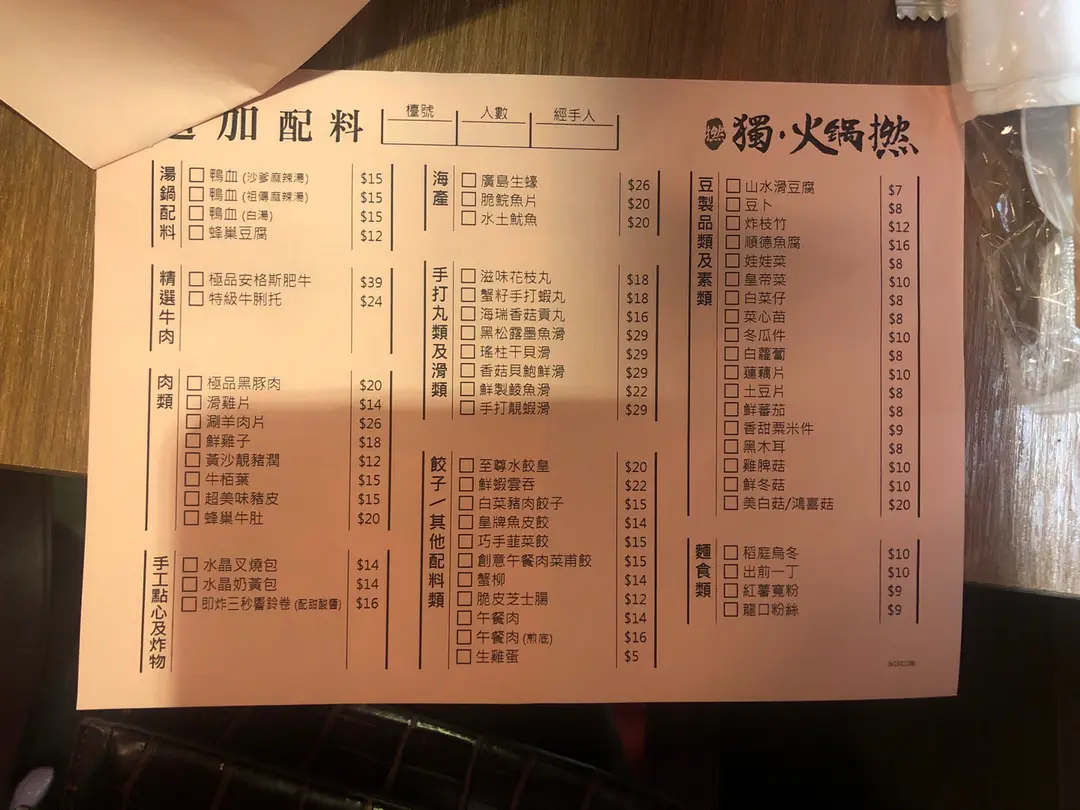 加配料
檯號 人數 經手人
撚 獨·火鍋撚
湯鍋配料
鴨血 (沙爹麻辣湯) $15
鴨血 (祖傳麻辣湯) $15
鴨血 (白湯) $15
蜂巢豆腐 $12
精選牛肉
極品安格斯肥牛 $39
特級牛脷托 $24
肉類
極品黑豚肉 $20
滑雞片 $14
涮羊肉片 $26
鮮雞子 $18
黃沙靚豬潤 $12
牛栢葉 $15
超美味豬皮 $15
蜂巢牛肚 $20
手工點心及炸物
水晶叉燒包 $14
水晶奶黃包 $14
即炸三秒響鈴卷 (配甜酸醬) $16
海產
廣島生蠔 $26
脆鯇魚片 $20
水土魷魚 $20
手打丸類及滑類
滋味花枝丸 $18
蟹籽手打蝦丸 $18
海瑞香菇貢丸 $16
黑松露墨魚滑 $29
瑤柱干貝滑 $29
香菇貝鮑鮮滑 $29
鮮製鯪魚滑 $22
手打靚蝦滑 $29
餃子/其他配料類
至尊水餃皇 $20
鮮蝦雲吞 $22
白菜豬肉餃子 $15
皇牌魚皮餃 $14
巧手韮菜餃 $15
創意午餐肉菜甫餃 $15
蟹柳 $14
脆皮芝士腸 $12
午餐肉 $14
午餐肉 (煎底) $16
生雞蛋 $5
豆製品類及素類
山水滑豆腐 $7
豆卜 $8
炸枝竹 $12
順德魚腐 $16
娃娃菜 $8
皇帝菜 $10
白菜仔 $8
菜心苗 $8
冬瓜件 $10
白蘿蔔 $8
蓮藕片 $10
土豆片 $8
鮮蕃茄 $8
香甜粟米件 $9
黑木耳 $8
雞脾菇 $10
鮮冬菇 $10
美白菇/鴻喜菇 $20
麵食類
稻庭烏冬 $10
出前一丁 $10
紅薯寬粉 $9
龍口粉絲 $9